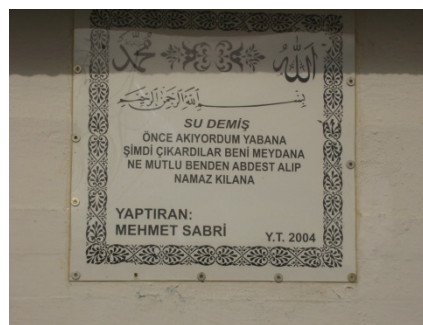 محمد الله
بسم الله الرحمن الرحيم
SU DEMİŞ
ÖNCE AKIYORDUM YABANA
ŞİMDİ ÇIKARDILAR BENİ MEYDANA
NE MUTLU BENDEN ABDEST ALIP
NAMAZ KILANA
YAPTIRAN:
MEHMET SABRİ
Y.T. 2004